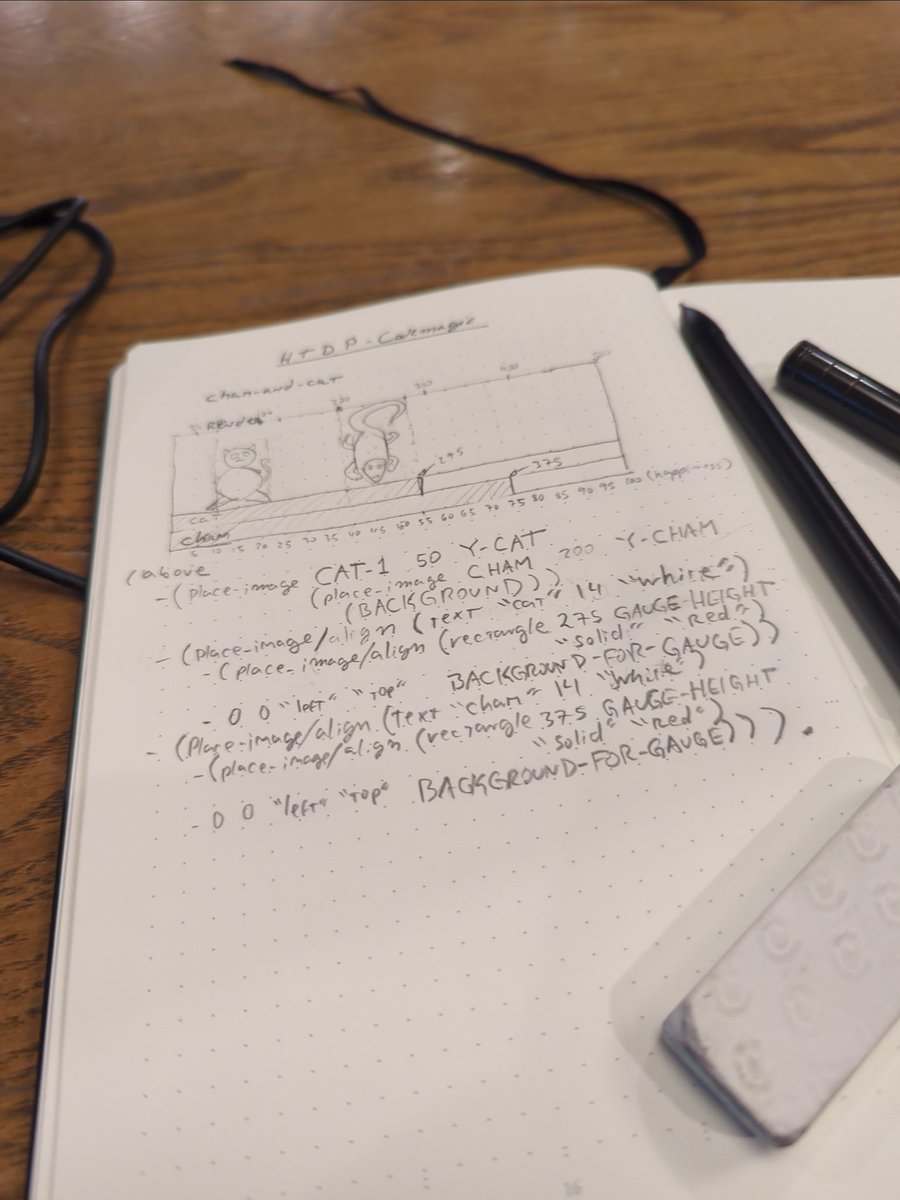 HTDP-Codemagic
cham-and-cat
Render
200 300 400 500
295
375
cat
cham
5 10 15 20 25 30 35 40 45 50 55 60 65 70 75 80 85 90 95 100 (happiness)
(above
-(place-image CAT-1 50 Y-CAT
(place-image CHAM 200 Y-CHAM
(BACKGROUND)))
-(place-image/align (text "cat" 14 "white")
-(place-image/align (rectangle 275 GAUGE-HEIGHT
"solid" "Red")
- 0 0 "left" "top" BACKGROUND-FOR-GAUGE))
-(place-image/align (text "cham" 14 "white")
-(place-image/align (rectangle 375 GAUGE-HEIGHT
"solid" "Red")
- 0 0 "left" "top" BACKGROUND-FOR-GAUGE))).
16